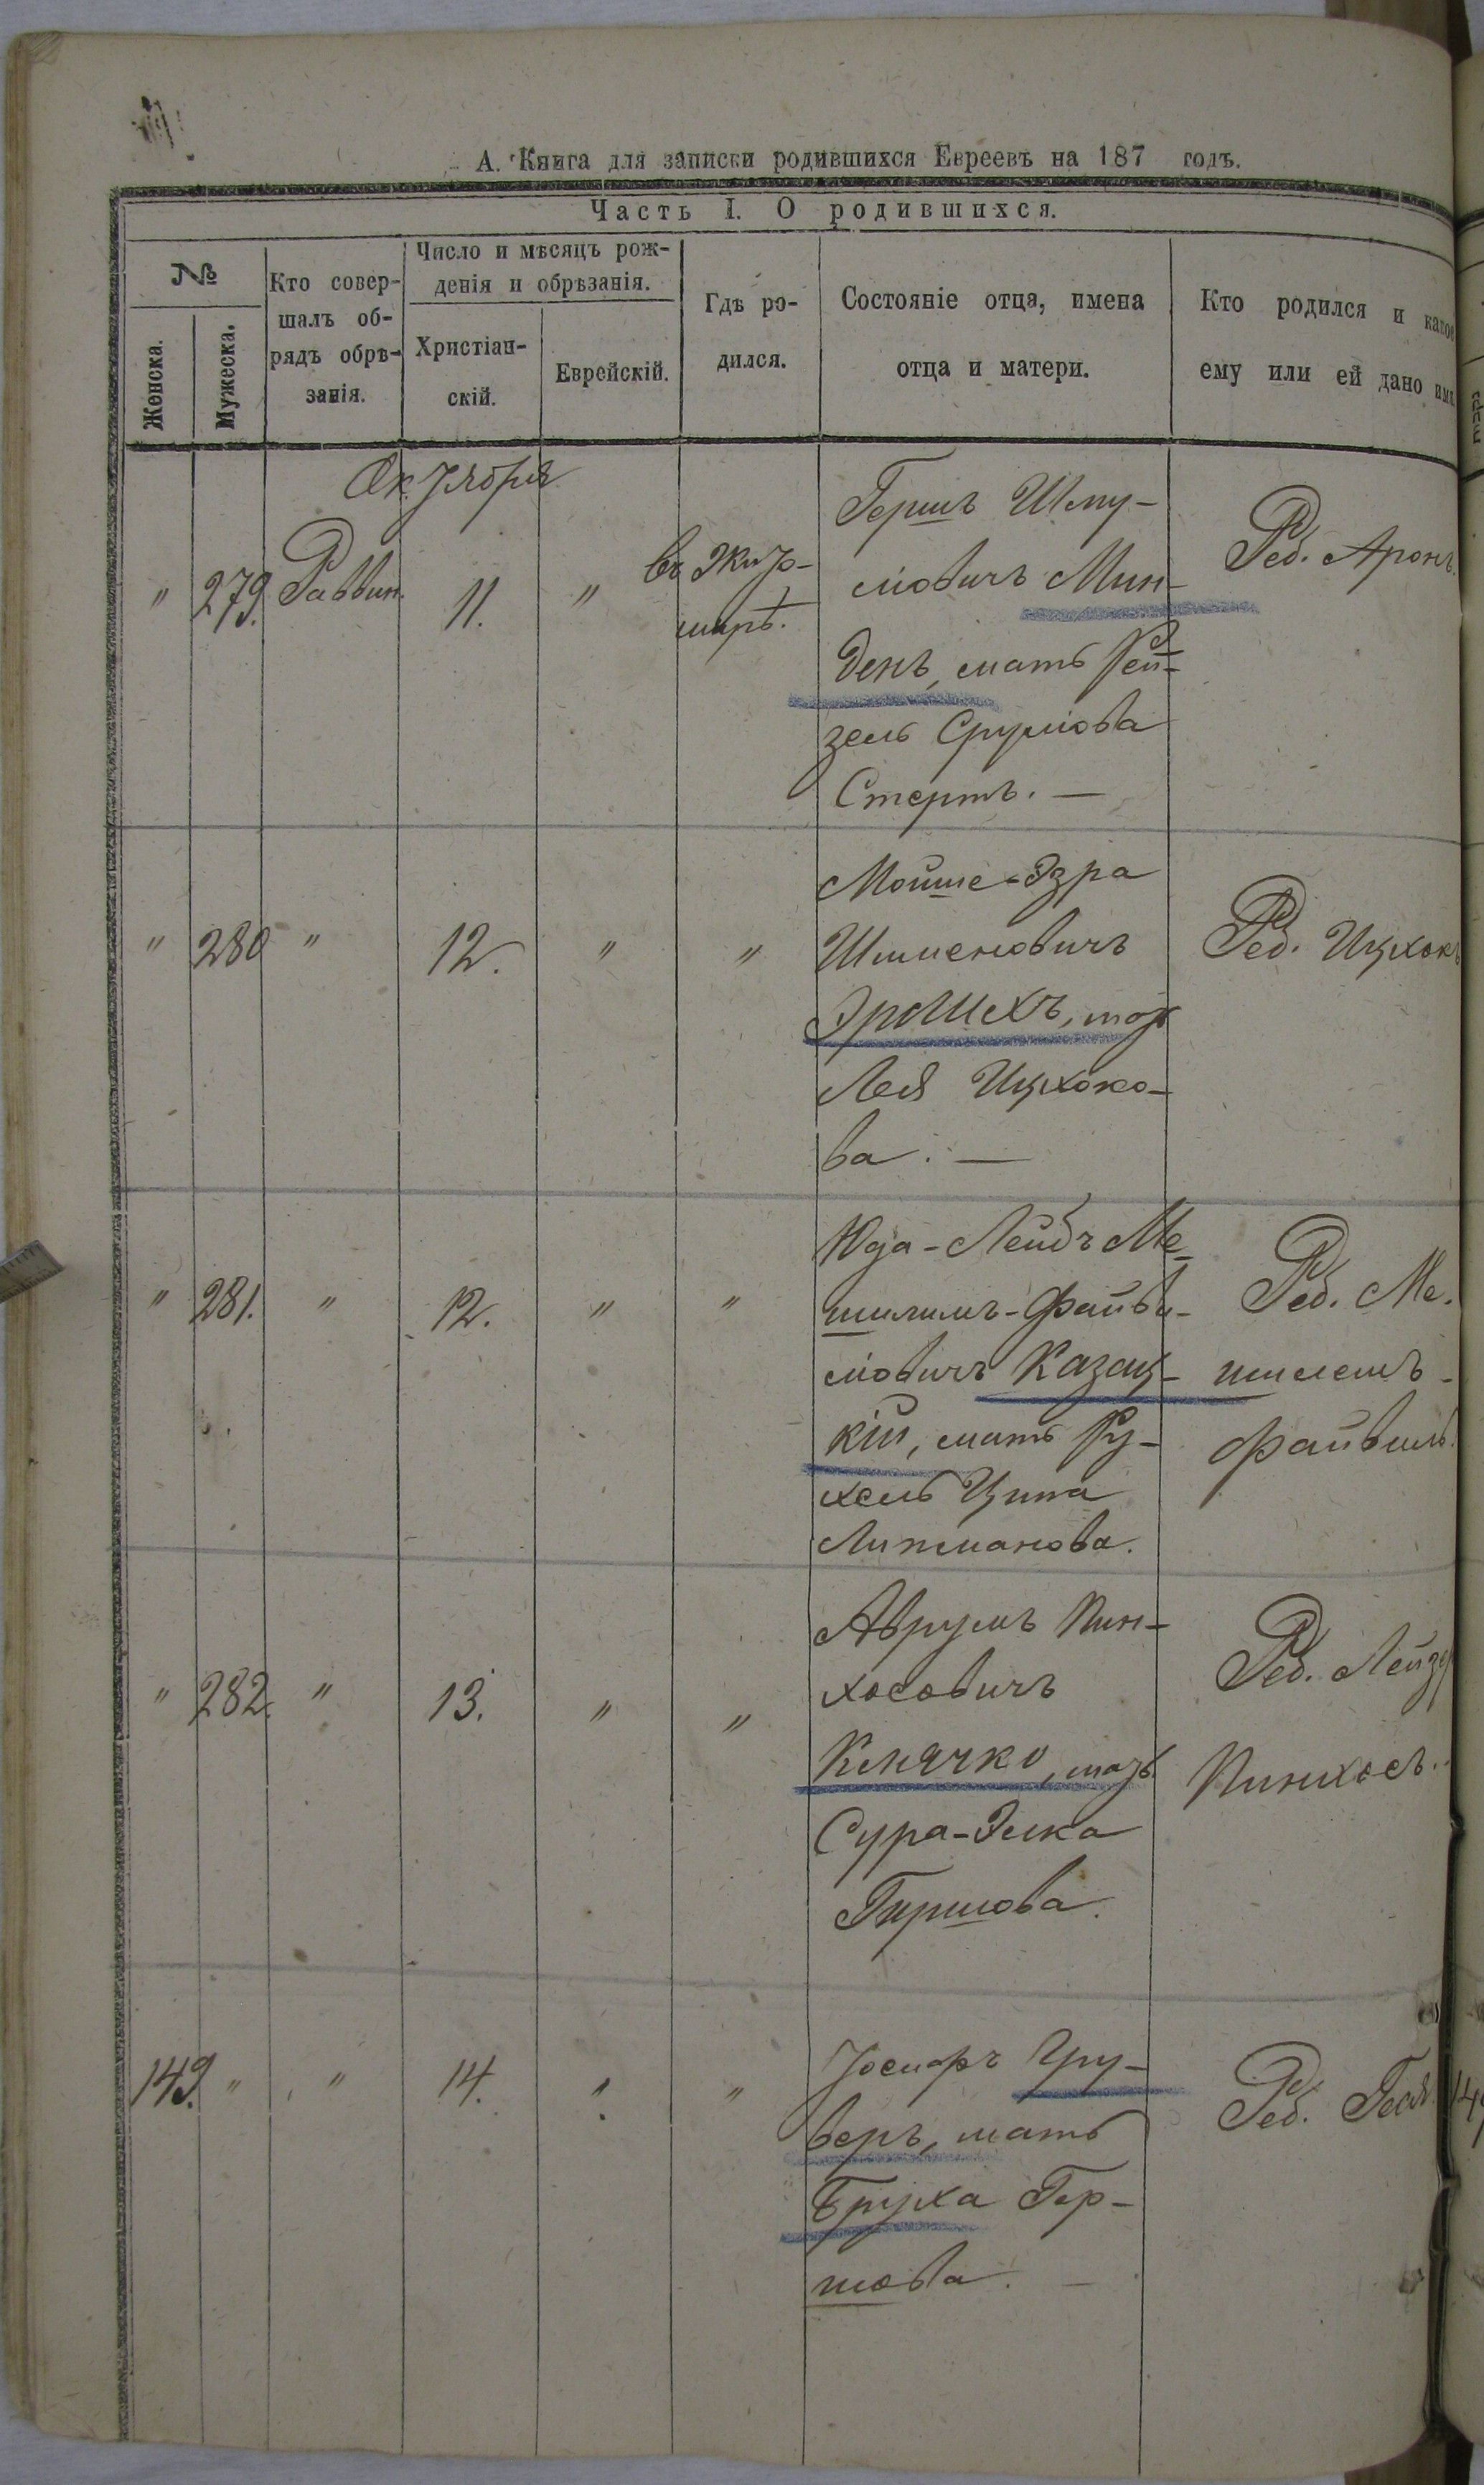 А. Книга для записки родившихся Евреевъ на 187 годъ.
Часть I. О родившихся.
№
Женска.
Мужеска.
Кто совер-
шалъ об-
рядъ обрѣ-
занія.
Число и мѣсяцъ рож-
денія и обрѣзанія.
Христіан-
скій.
Еврейскій.
Гдѣ ро-
дился.
Состояніе отца, имена
отца и матери.
Кто родился и какое
ему или ей дано имя
Октября
" 279. Раввин. 11. "
въ Жито-
мирѣ.
Гершъ Шму-
ліовичъ Мин-
денъ, мать Рей-
зель Сруліова
Стертъ. —
Реб. Аронъ.
" 280 " 12. " "
Мойше-Эзра
Шименовичъ
Эрлихъ, мать
Лея Ицхоко-
ва. —
Реб. Ицхокъ
" 281. " 12. " "
Юда-Лейбъ Ме-
шилимъ-Файве-
ліовичъ Казац-
кій, мать Ру-
хель Ципа
Липманова.
Реб. Ме-
шилемъ-
Файвиль.
" 282. " 13. " "
Аврумъ Пин-
хосовичъ
Клячко, мать
Сура-Элка
Гиршова.
Реб. Лейзер
Пинхосъ.
149. " " 14. " "
Іосифъ Гру-
веръ, мать
Бруха Гер-
шова. —
Реб. Гися.